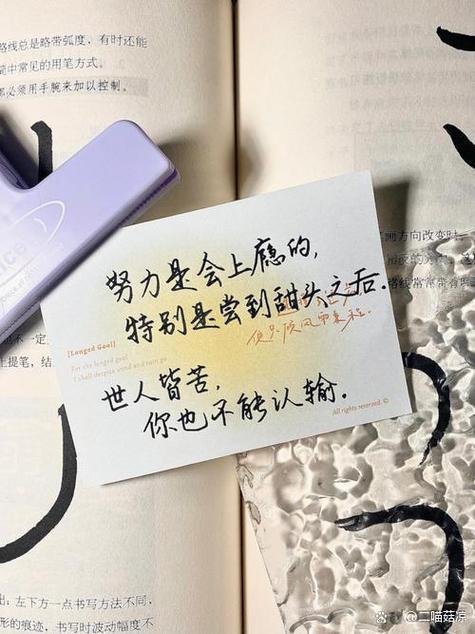 路线总是略带弧度，有时还能
简中常见的用笔方式。
都必须用手腕来加以控制。
画方向改变时一
路线常常带有
努力是会上瘾的，
特别是尝到甜头之后.
便只顾风雨兼程.
[Longed Goal]
For the longed goal
I shall despise wind and rain go
世人皆苦，
你也不能认输.
All rights reserved. ©
不一定
上提笔，结
出：左下方一点书写方法不同，
形的痕迹，书写时波动幅度不
@二喵菇凉